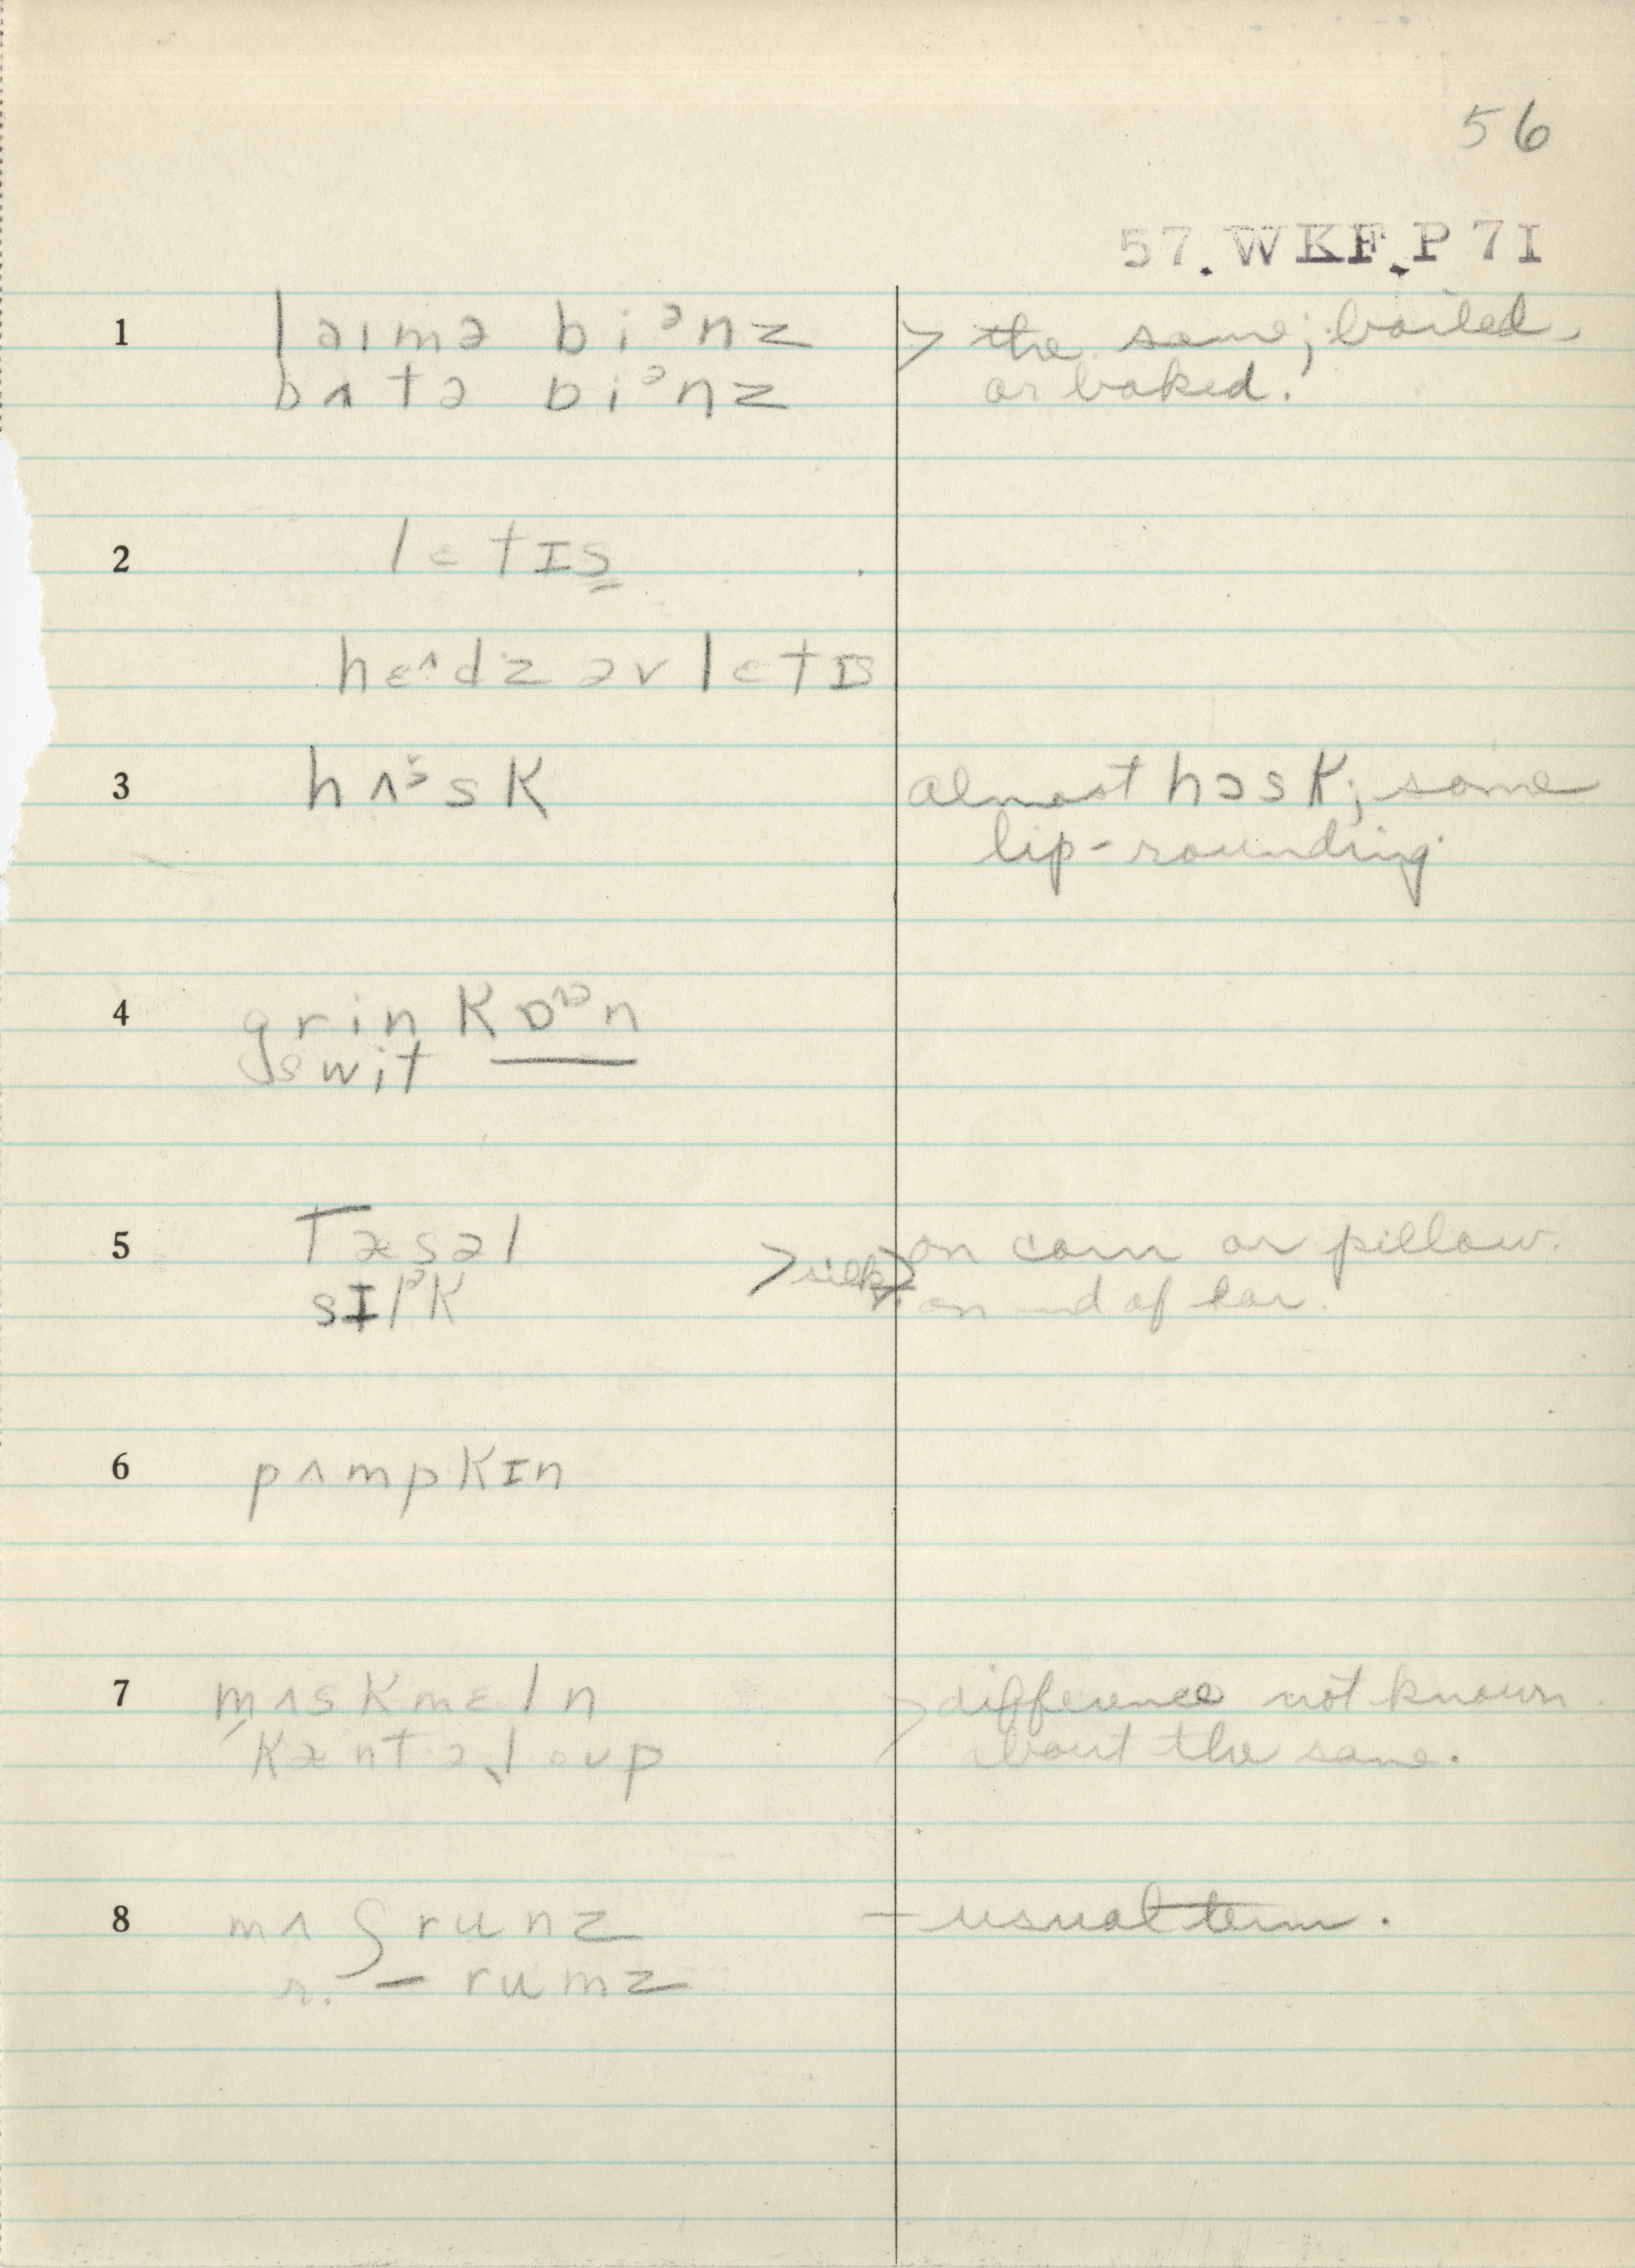 56
57.WKF.P7I
1 laɪmə biᵊnz > the same; boiled,
bʌtə biᵊnz or baked.
2 lɛtɪs
hɛʌdz əv lɛtɪs
3 hʌɔ̆sk almost hɔsk; some
lip-rounding
4 grin kɒn
swit
5 tæsəl on corn or pillow.
sɪlᵊk >silk> on end of ear.
6 pʌmpkɪn
7 mʌskmɛln > difference not known.
ˈkæntəˌloʊp about the same.
8 mʌʃrunz – usual term.
r. – rumz